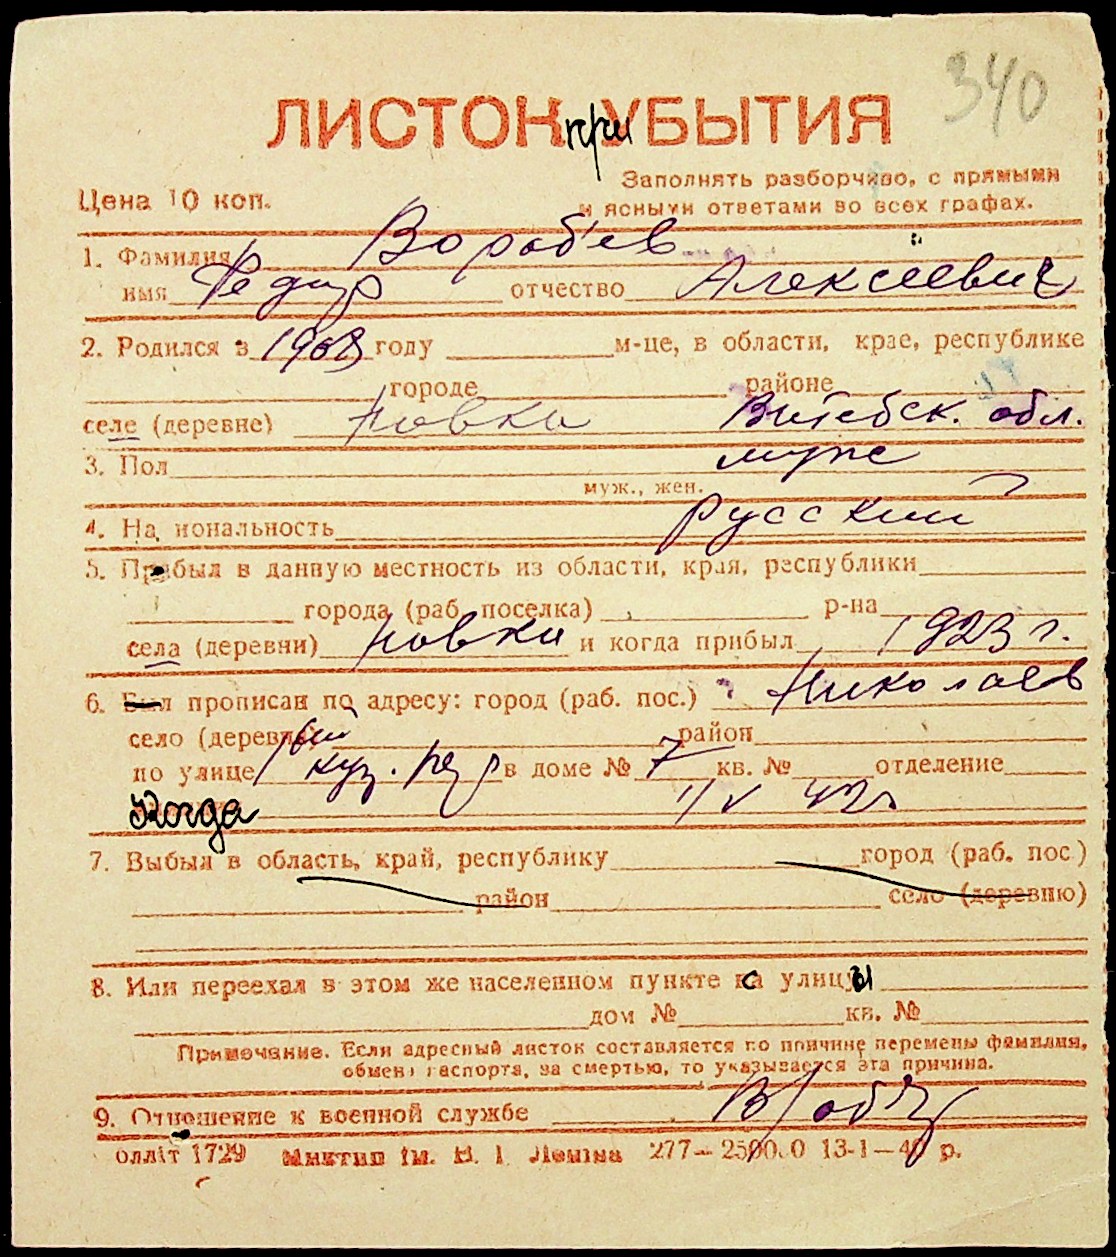 340
ЛИСТОК прибытия
Цена 10 коп.
Заполнять разборчиво, с прямыми
и ясными ответами во всех графах.
1. Фамилия Вороб'ев
имя Федор отчество Алексеевич
2. Родился в 1908 году м-це, в области, крае, республике
городе районе
селе (деревне) Новки Витебск. обл.
3. Пол муж
муж., жен.
4. Национальность русский
5. Прибыл в данную местность из области, края, республики
города (раб. поселка) р-на
села (деревни) Новки и когда прибыл 1923 г.
6. прописан по адресу: город (раб. пос.) Николаев
село (деревня) район
по улице куз. в доме № 7 кв. № отделение
Когда 1/V 42г
7. Выбыл в область, край, республику город (раб. пос.)
район село (деревню)
8. Или переехал в этом же населенном пункте с улицы
дом № кв. №
Примечание. Если адресный листок составляется по причине перемены фамилии,
обмена паспорта, за смертью, то указывается эта причина.
9. Отношение к военной службе
оллiт 1729 Миктип iм. В. І. Ленiна 277— 13-1—4